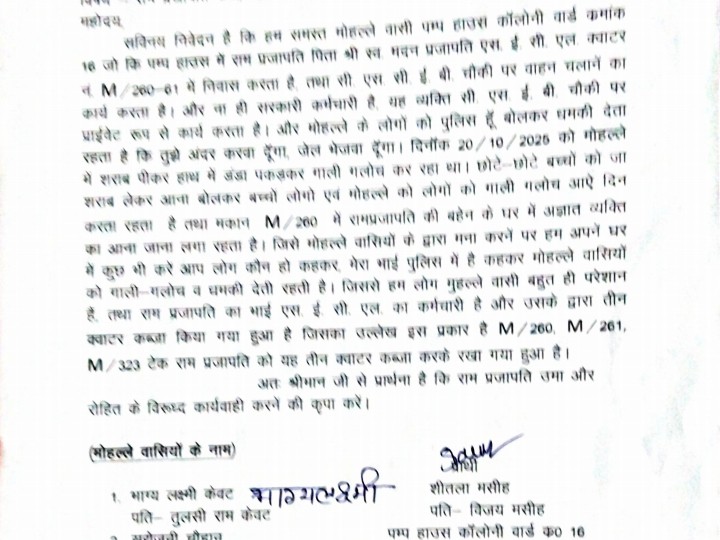 महोदय,
सविनय निवेदन है कि हम समस्त मोहल्ले वासी पम्प हाउस कॉलोनी वार्ड कमांक
16 जो कि पम्प हाउस में राम प्रजापति पिता श्री स्व. मदन प्रजापति एस. ई. सी. एल. क्वाटर
नं. M/260-61 में निवास करता है, तथा सी. एस. सी. ई. बी. चौकी पर वाहन चलाने का
कार्य करता है। और ना ही सरकारी कर्मचारी है, यह व्यक्ति सी. एस. ई. बी. चौकी पर
प्राईवेट रूप से कार्य करता है। और मोहल्ले के लोगों को पुलिस हूँ बोलकर धमकी देता
रहता है कि तुझे अंदर करवा दूँगा, जेल भेजवा दूँगा। दिनाँक 20/10/2025 को मोहल्ले
में शराब पीकर हाथ में डंडा पकड़कर गाली गलोच कर रहा था। छोटे-छोटे बच्चों को जा
शराब लेकर आना बोलकर बच्चो लोगो एवं मोहल्ले को लोगों को गाली गलोच आऐ दिन
करता रहता है तथा मकान M/260 में रामप्रजापति की बहेन के घर में अज्ञात व्यक्ति
का आना जाना लगा रहता है। जिसे मोहल्ले वासियों के द्वारा मना करनें पर हम अपनें घर
में कुछ भी करें आप लोग कौन हो कहकर, मेरा भाई पुलिस में है कहकर मोहल्ले वासियों
को गाली-गलोच व धमकी देती रहती है। जिससे हम लोग मुहल्ले वासी बहुत ही परेशान
हैं, तथा राम प्रजापति का भाई एस. ई. सी. एल. का कर्मचारी है और उसके द्वारा तीन
क्वाटर कब्जा किया गया हुआ है जिसका उल्लेख इस प्रकार है M/260, M/261,
M/323 टेक राम प्रजापति को यह तीन क्वाटर कब्जा करके रखा गया हुआ है।
अतः श्रीमान जी से प्रार्थना है कि राम प्रजापति उमा और
रोहित के विरूध्द कार्यवाही करने की कृपा करें।
(मोहल्ले वासियों के नाम)
प्रार्थी
1. भाग्य लक्ष्मी केवट भाग्यलक्ष्मी
शीतला मसीह
पति- तुलसी राम केवट
पति- विजय मसीह
2. सरोजनी चौहान
पम्प हाउस कॉलोनी वार्ड क0 16